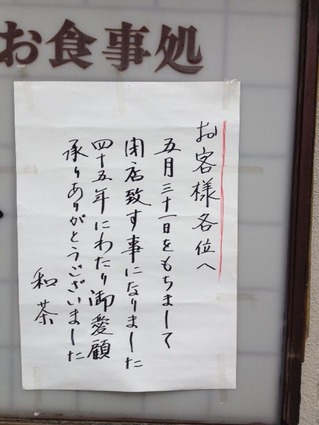 お食事処
お客様各位へ
五月三十一日をもちまして
閉店致す事になりました
四十五年にわたり御愛顧
承りありがとうございました
和茶